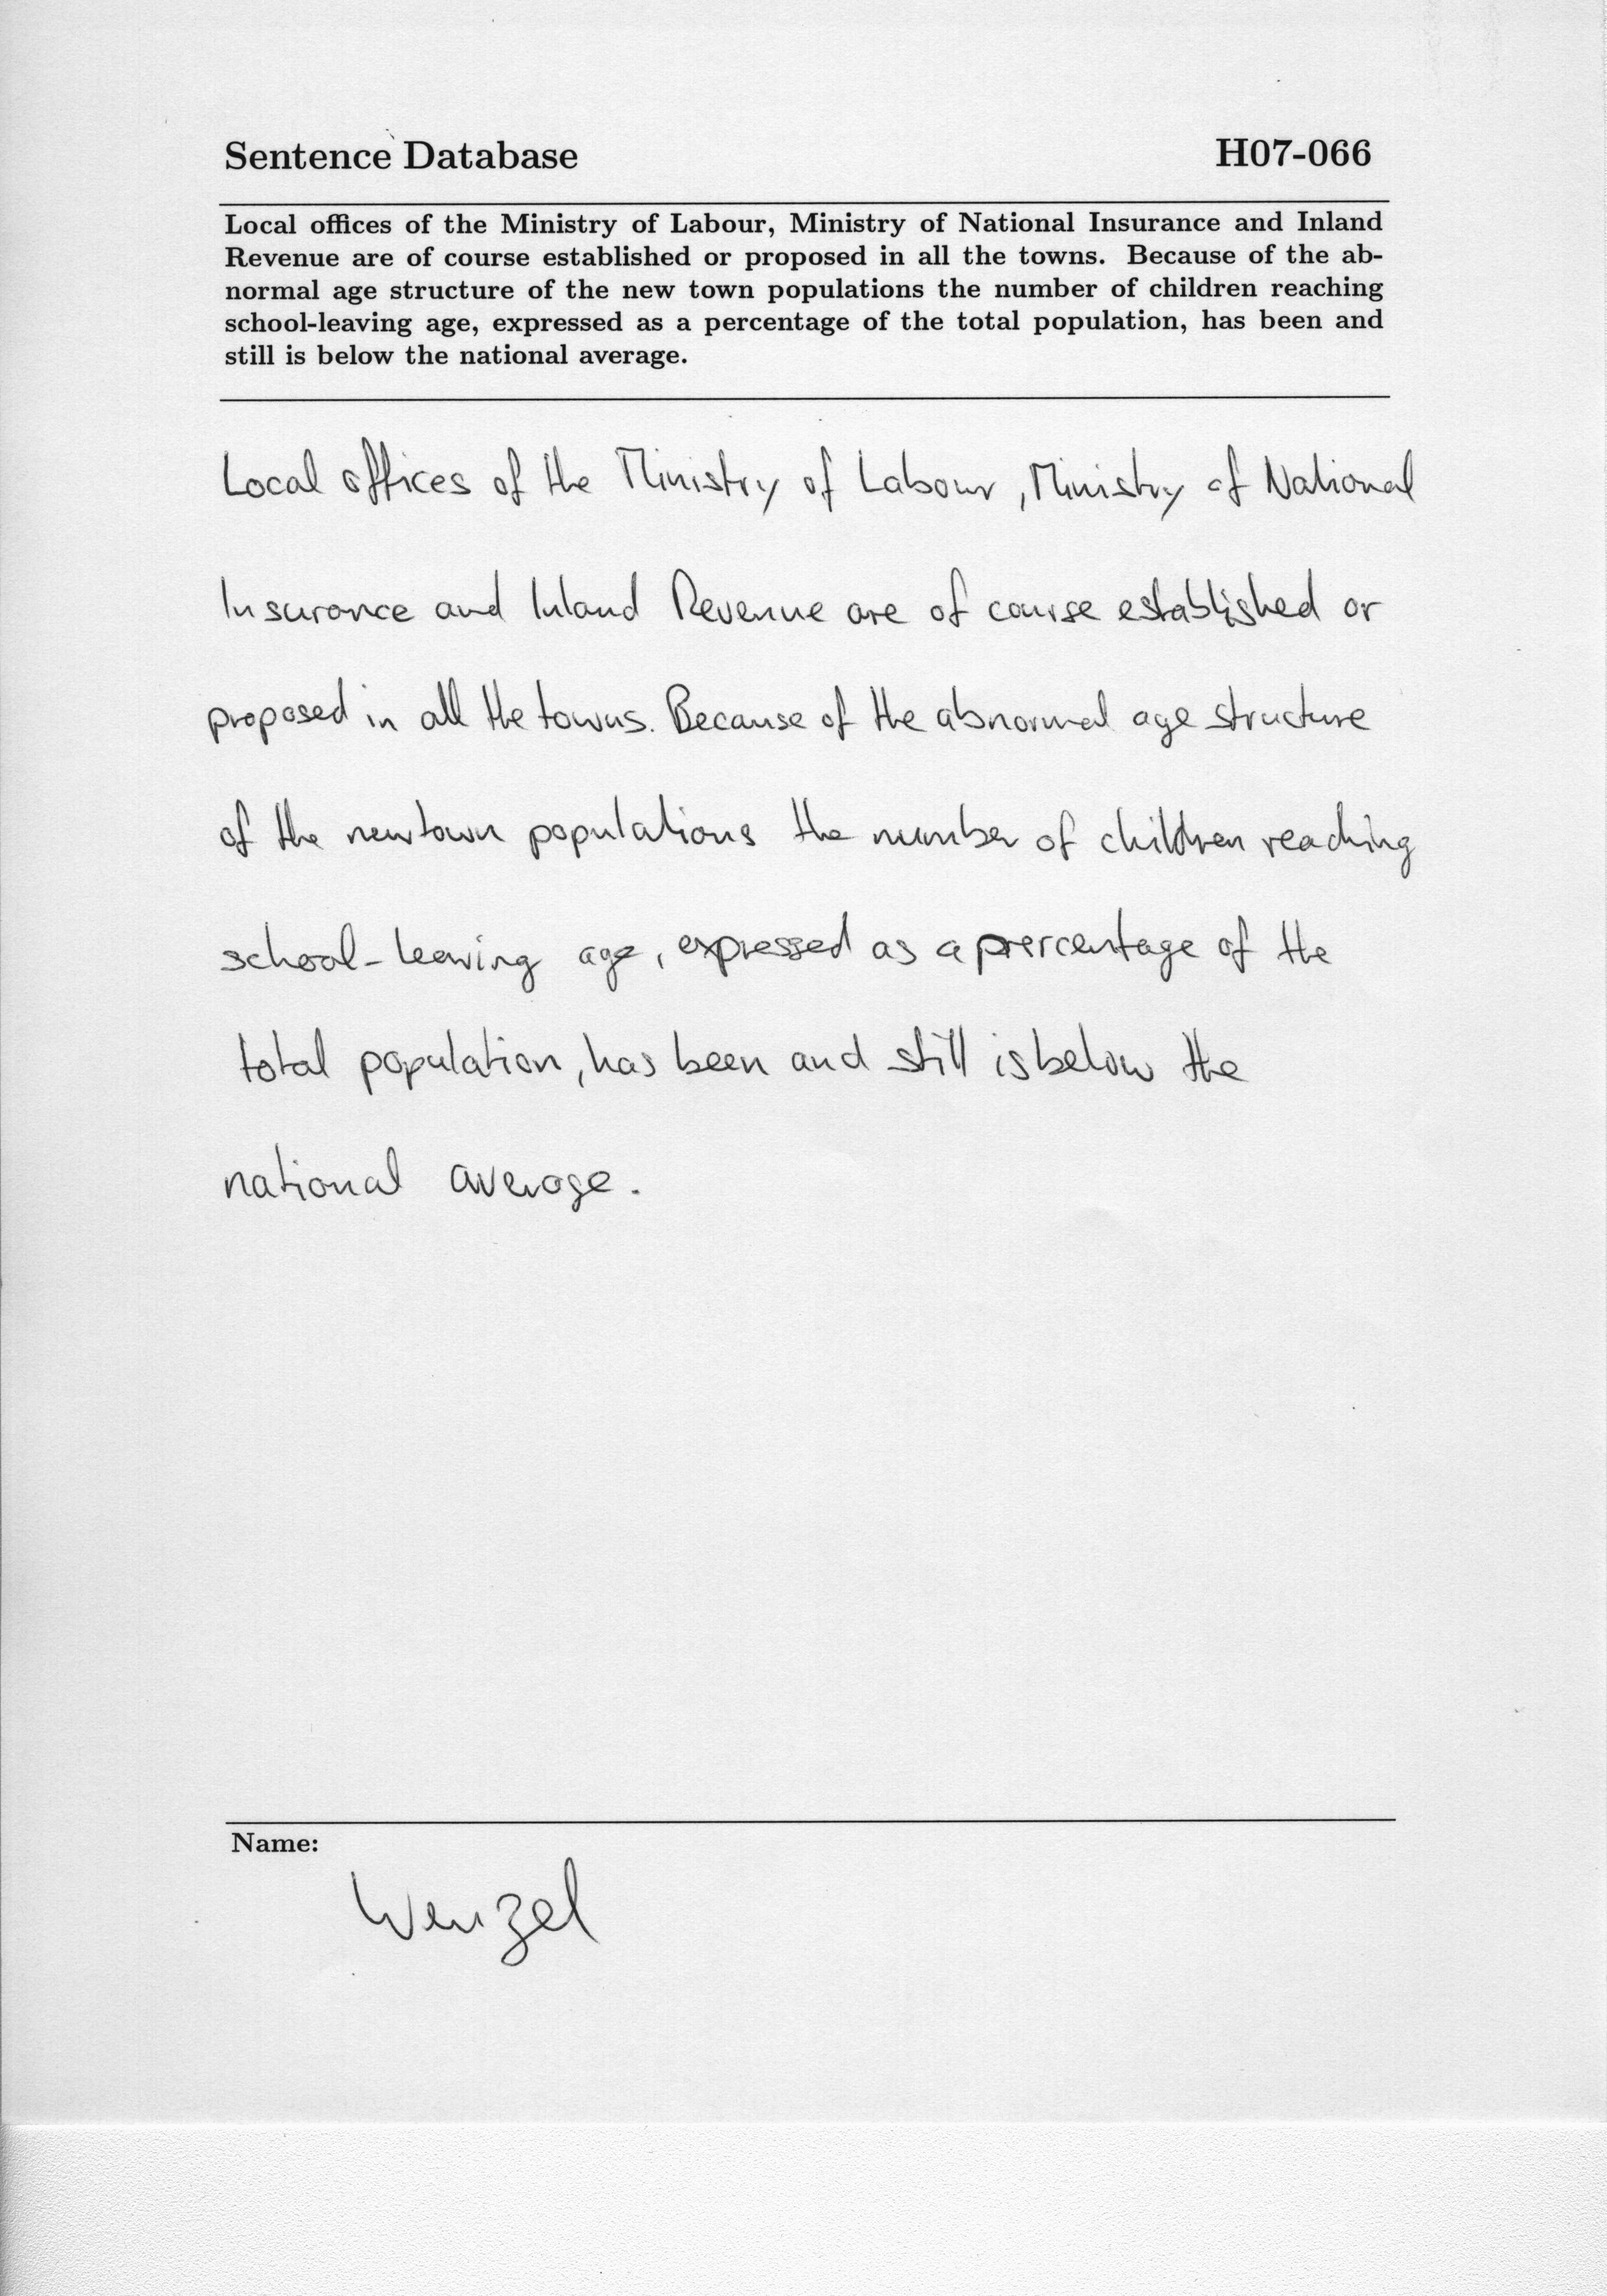 Sentence Database H07-066
Local offices of the Ministry of Labour, Ministry of National Insurance and Inland
Revenue are of course established or proposed in all the towns. Because of the ab-
normal age structure of the new town populations the number of children reaching
school-leaving age, expressed as a percentage of the total population, has been and
still is below the national average.
Local offices of the Ministry of Labour, Ministry of National
Insurance and Inland Revenue are of course established or
proposed in all the towns. Because of the abnormal age structure
of the new town populations the number of children reaching
school-leaving age, expressed as a prercentage of the
total population, has been and still is below the
national average.
Name:
Wenzel